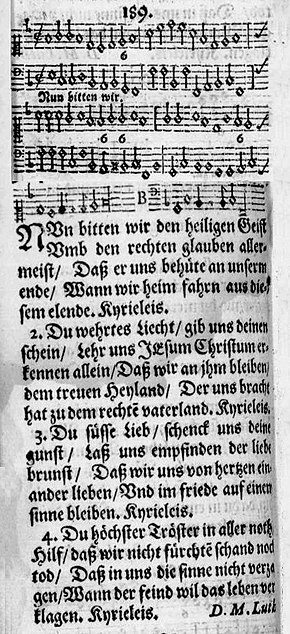 189.
6
Nun bitten wir.
6 6
6 6
B
NUn bitten wir den heiligen Geist
Vmb den rechten glauben aller-
meist/ Daß er uns behüte an unserm
ende/ Wann wir heim fahrn aus die-
sem elende. Kyrieleis.
2. Du wehrtes Liecht/ gib uns deinen
schein/ Lehr uns JEsum Christum er-
kennen allein/ Daß wir an jhm bleiben/
dem treuen Heyland/ Der uns bracht
hat zu dem rechtē vaterland. Kyrieleis.
3. Du süsse Lieb/ schenck uns deine
gunst/ Laß uns empfinden der liebe
brunst/ Daß wir uns von hertzen ein-
ander lieben/ Vnd im friede auf einem
sinne bleiben. Kyrieleis.
4. Du höchster Tröster in aller noth
Hilf/ daß wir nicht fürchtē schand noch
tod/ Daß in uns die sinne nicht verza-
gen/ Wann der feind wil das leben ver-
klagen. Kyrieleis. D. M. Luth